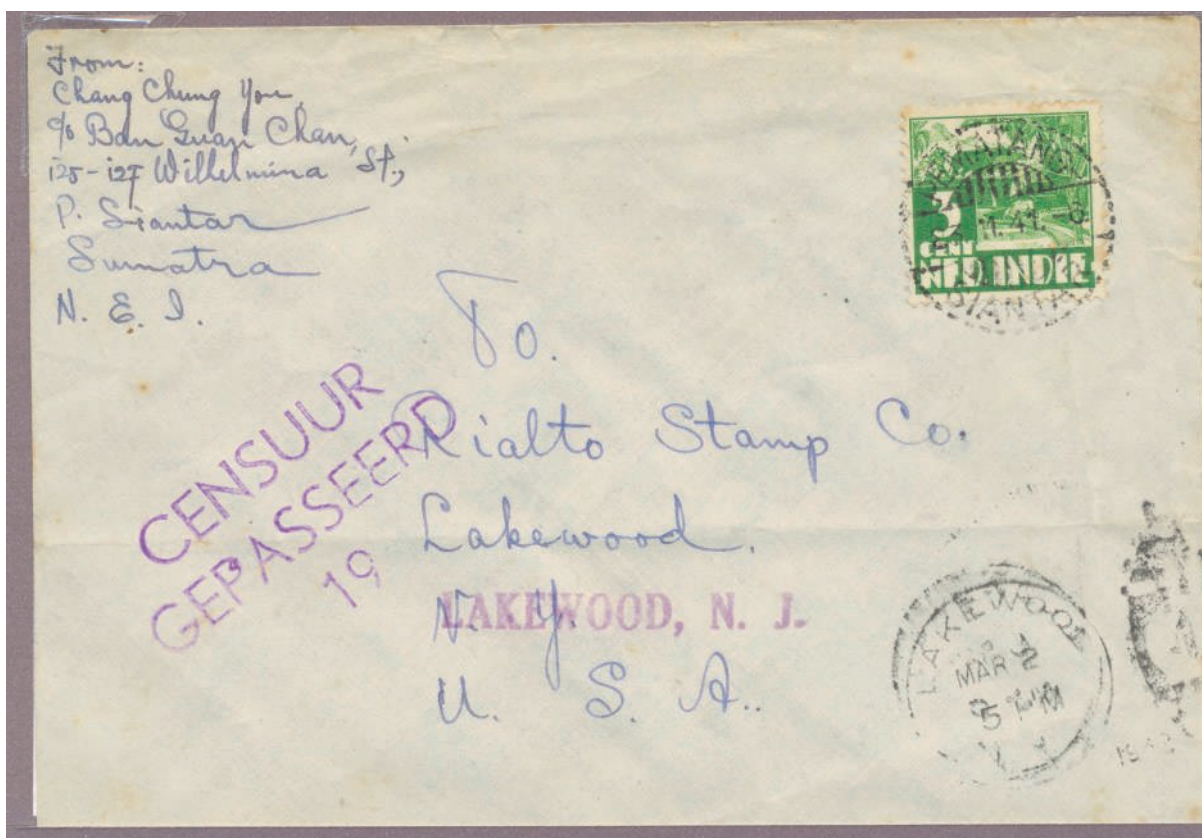 From:
Chang Chung You,
c/o Ban Guan Chan,
125-127 Wilhelmina St.,
P. Siantar
Sumatra
N. E. I.
PEMATANG
11.41. -8
SIANTAR
3
CENT
NED. INDIE
To.
Rialto Stamp Co.
Lakewood.
N. Y.
U. S. A..
CENSUUR
GEPASSEERD
19
LAKEWOOD, N. J.
LAKEWOOD
MAR 2
5 PM